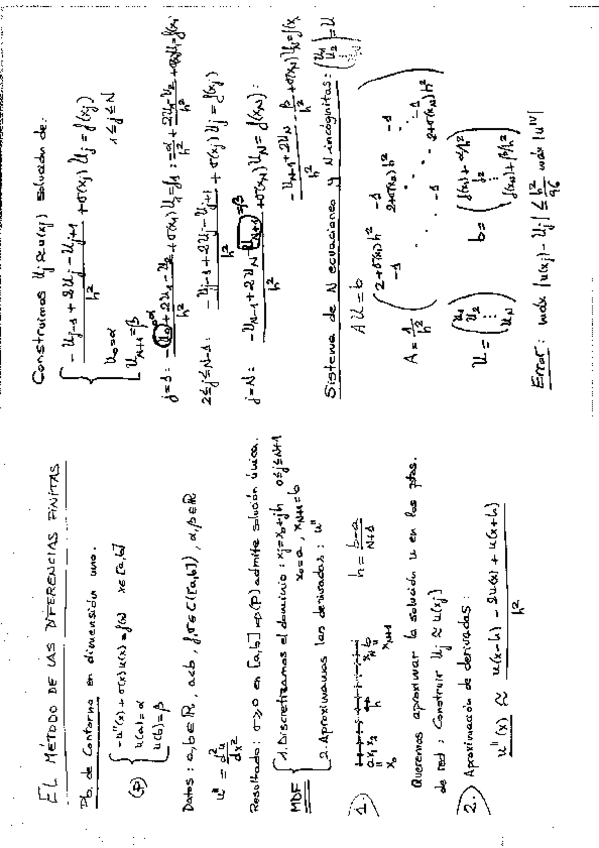 EL MÉTODO DE LAS DIFERENCIAS FINITAS
Pb. de Contorno en dimensión uno.
(P) { -u''(x) + σ(x)u(x) = f(x) x∈[a,b]
u(a)=α
u(b)=β
Datos: a,b∈ℝ, a<b, f,σ∈C([a,b]), α,β∈ℝ
u'' = d²u/dx²
Resultado: σ≥0 en [a,b] ⇒ (P) admite solución única.
MDF { 1. Discretizamos el dominio: xj=x0+jh 0≤j≤N+1
x0=a, xN+1=b
2. Aproximamos las derivadas: u''
1.) a x1 x2 h xN b
x0 xN+1
h = b-a/N+1
Queremos aproximar la solución u en los ptos.
de red; Construir Uj ≈ u(xj)
2.) Aproximación de derivadas:
u''(x) ≈ u(x-h) - 2u(x) + u(x+h)/h²
Construimos Uj ≈ u(xj) solución de:
{ -Uj-1 + 2Uj - Uj+1/h² + σ(xj)Uj = f(xj)
1≤j≤N
U0=α
UN+1=β
j=1: -U0 + 2U1 - U2/h² + σ(x1)U1 = f1
2≤j≤N-1: -Uj-1 + 2Uj - Uj+1/h² + σ(xj)Uj = f(xj)
j=N: -UN-1 + 2UN - UN+1/h² + σ(xN)UN = f(xN):
-UN-1 + 2UN/h² - β/h² + σ(xN)UN = f(x
Sistema de N ecuaciones y N incógnitas: (U1 U2 ⋮ UN) = U
AU = b
A = 1/h² ( 2+σ(x1)h² -1
-1 2+σ(x2)h² -1
-1 -1
2+σ(xN)h² )
U = (U1 U2 ⋮ UN) b = (f(x1)+α/h² f2 ⋮ f(xN)+β/h²)
Error: máx |u(xj) - Uj| ≤ h²/96 máx |u^IV|